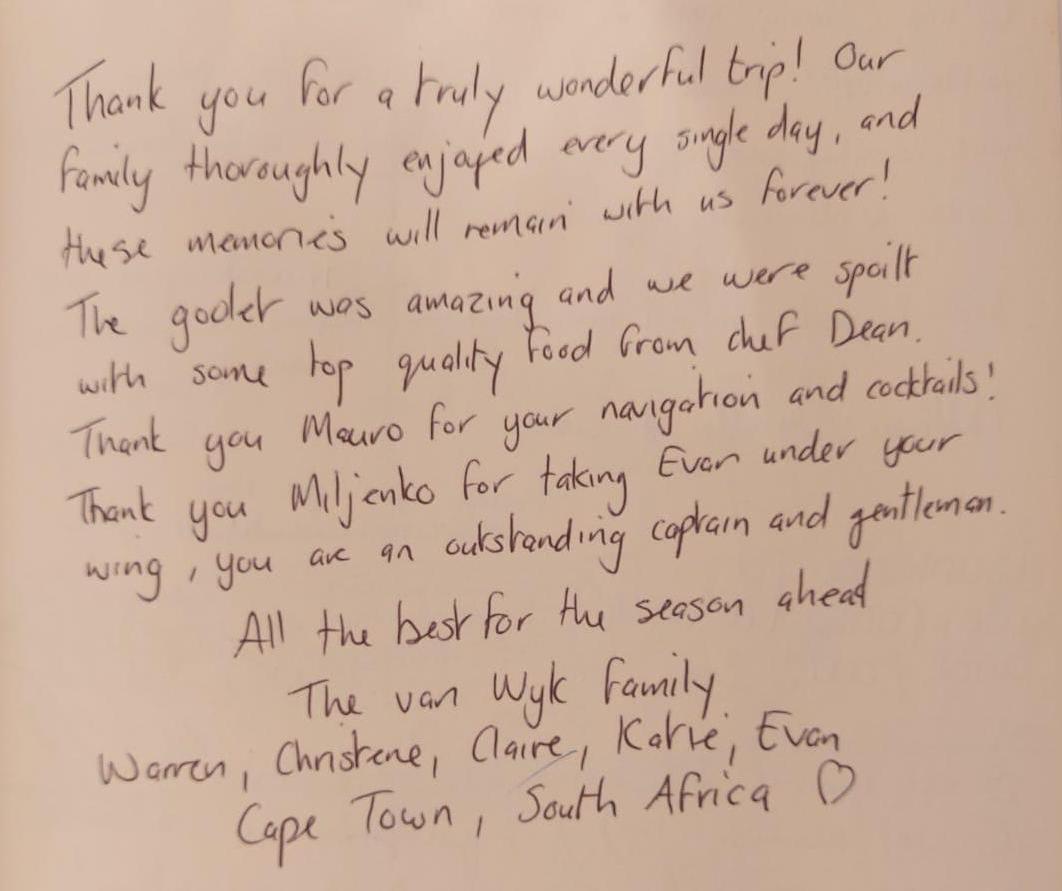 Thank you for a truly wonderful trip! Our
family thoroughly enjoyed every single day, and
these memories will remain with us forever!
The goolet was amazing and we were spoilt
with some top quality food from chef Dean.
Thank you Mauro for your navigation and cocktails!
Thank you Miljenko for taking Evan under your
wing, you are an outstanding captain and gentleman.
All the best for the season ahead
The van Wyk family
Warren, Christene, Claire, Katie, Evan
Cape Town, South Africa ♡